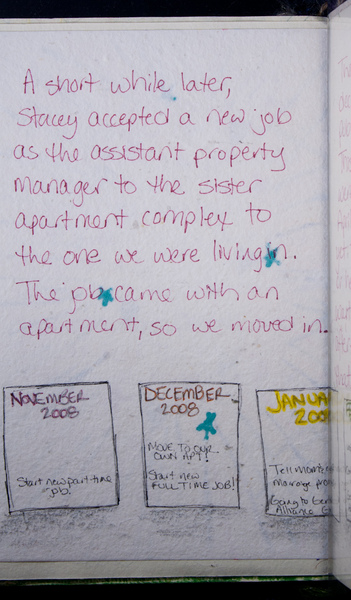 A short while later,
Stacey accepted a new job
as the assistant property
manager to the sister
apartment complex to
the one we were living in.
The job came with an
apartment, so we moved in.
NOVEMBER
2008
Start new part-time
job!
DECEMBER
2008
MOVE TO OUR
OWN APT!
Start new
FULL TIME JOB!
Tell
marriage
Going to
Alliance